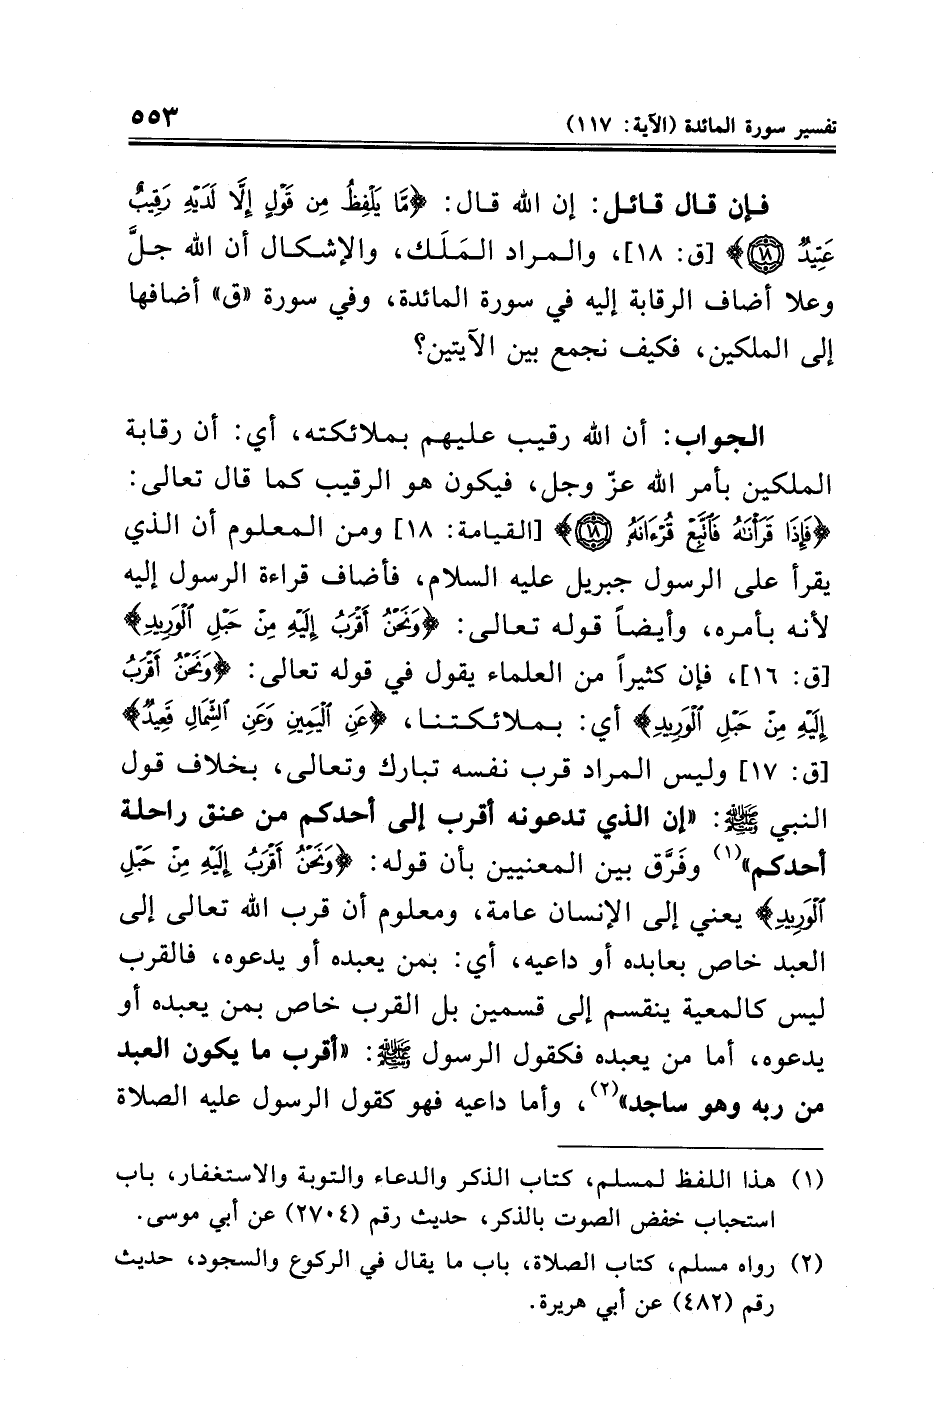 تفسير سورة المائدة (الآية: ١١٧) ٥٥٣
فإن قال قائل: إن الله قال: ﴿مَّا يَلْفِظُ مِن قَوْلٍ إِلَّا لَدَيْهِ رَقِيبٌ
عَتِيدٌ ١٨﴾ [ق: ١٨]، والمراد المَلَك، والإشكال أن الله جلَّ
وعلا أضاف الرقابة إليه في سورة المائدة، وفي سورة «ق» أضافها
إلى الملكين، فكيف نجمع بين الآيتين؟
الجواب: أن الله رقيب عليهم بملائكته، أي: أن رقابة
الملكين بأمر الله عزّ وجل، فيكون هو الرقيب كما قال تعالى:
﴿فَإِذَا قَرَأْنَٰهُ فَٱتَّبِعْ قُرْءَانَهُۥ ١٨﴾ [القيامة: ١٨] ومن المعلوم أن الذي
يقرأ على الرسول جبريل عليه السلام، فأضاف قراءة الرسول إليه
لأنه بأمره، وأيضاً قوله تعالى: ﴿وَنَحْنُ أَقْرَبُ إِلَيْهِ مِنْ حَبْلِ ٱلْوَرِيدِ﴾
[ق: ١٦]، فإن كثيراً من العلماء يقول في قوله تعالى: ﴿وَنَحْنُ أَقْرَبُ
إِلَيْهِ مِنْ حَبْلِ ٱلْوَرِيدِ﴾ أي: بملائكتنا، ﴿عَنِ ٱلْيَمِينِ وَعَنِ ٱلشِّمَالِ قَعِيدٌ﴾
[ق: ١٧] وليس المراد قرب نفسه تبارك وتعالى، بخلاف قول
النبي ﷺ: «إن الذي تدعونه أقرب إلى أحدكم من عنق راحلة
أحدكم»(١) وفَرَّق بين المعنيين بأن قوله: ﴿وَنَحْنُ أَقْرَبُ إِلَيْهِ مِنْ حَبْلِ
ٱلْوَرِيدِ﴾ يعني إلى الإنسان عامة، ومعلوم أن قرب الله تعالى إلى
العبد خاص بعابده أو داعيه، أي: بمن يعبده أو يدعوه، فالقرب
ليس كالمعية ينقسم إلى قسمين بل القرب خاص بمن يعبده أو
يدعوه، أما من يعبده فكقول الرسول ﷺ: «أقرب ما يكون العبد
من ربه وهو ساجد»(٢)، وأما داعيه فهو كقول الرسول عليه الصلاة
(١) هذا اللفظ لمسلم، كتاب الذكر والدعاء والتوبة والاستغفار، باب
استحباب خفض الصوت بالذكر، حديث رقم (٢٧٠٤) عن أبي موسى.
(٢) رواه مسلم، كتاب الصلاة، باب ما يقال في الركوع والسجود، حديث
رقم (٤٨٢) عن أبي هريرة.